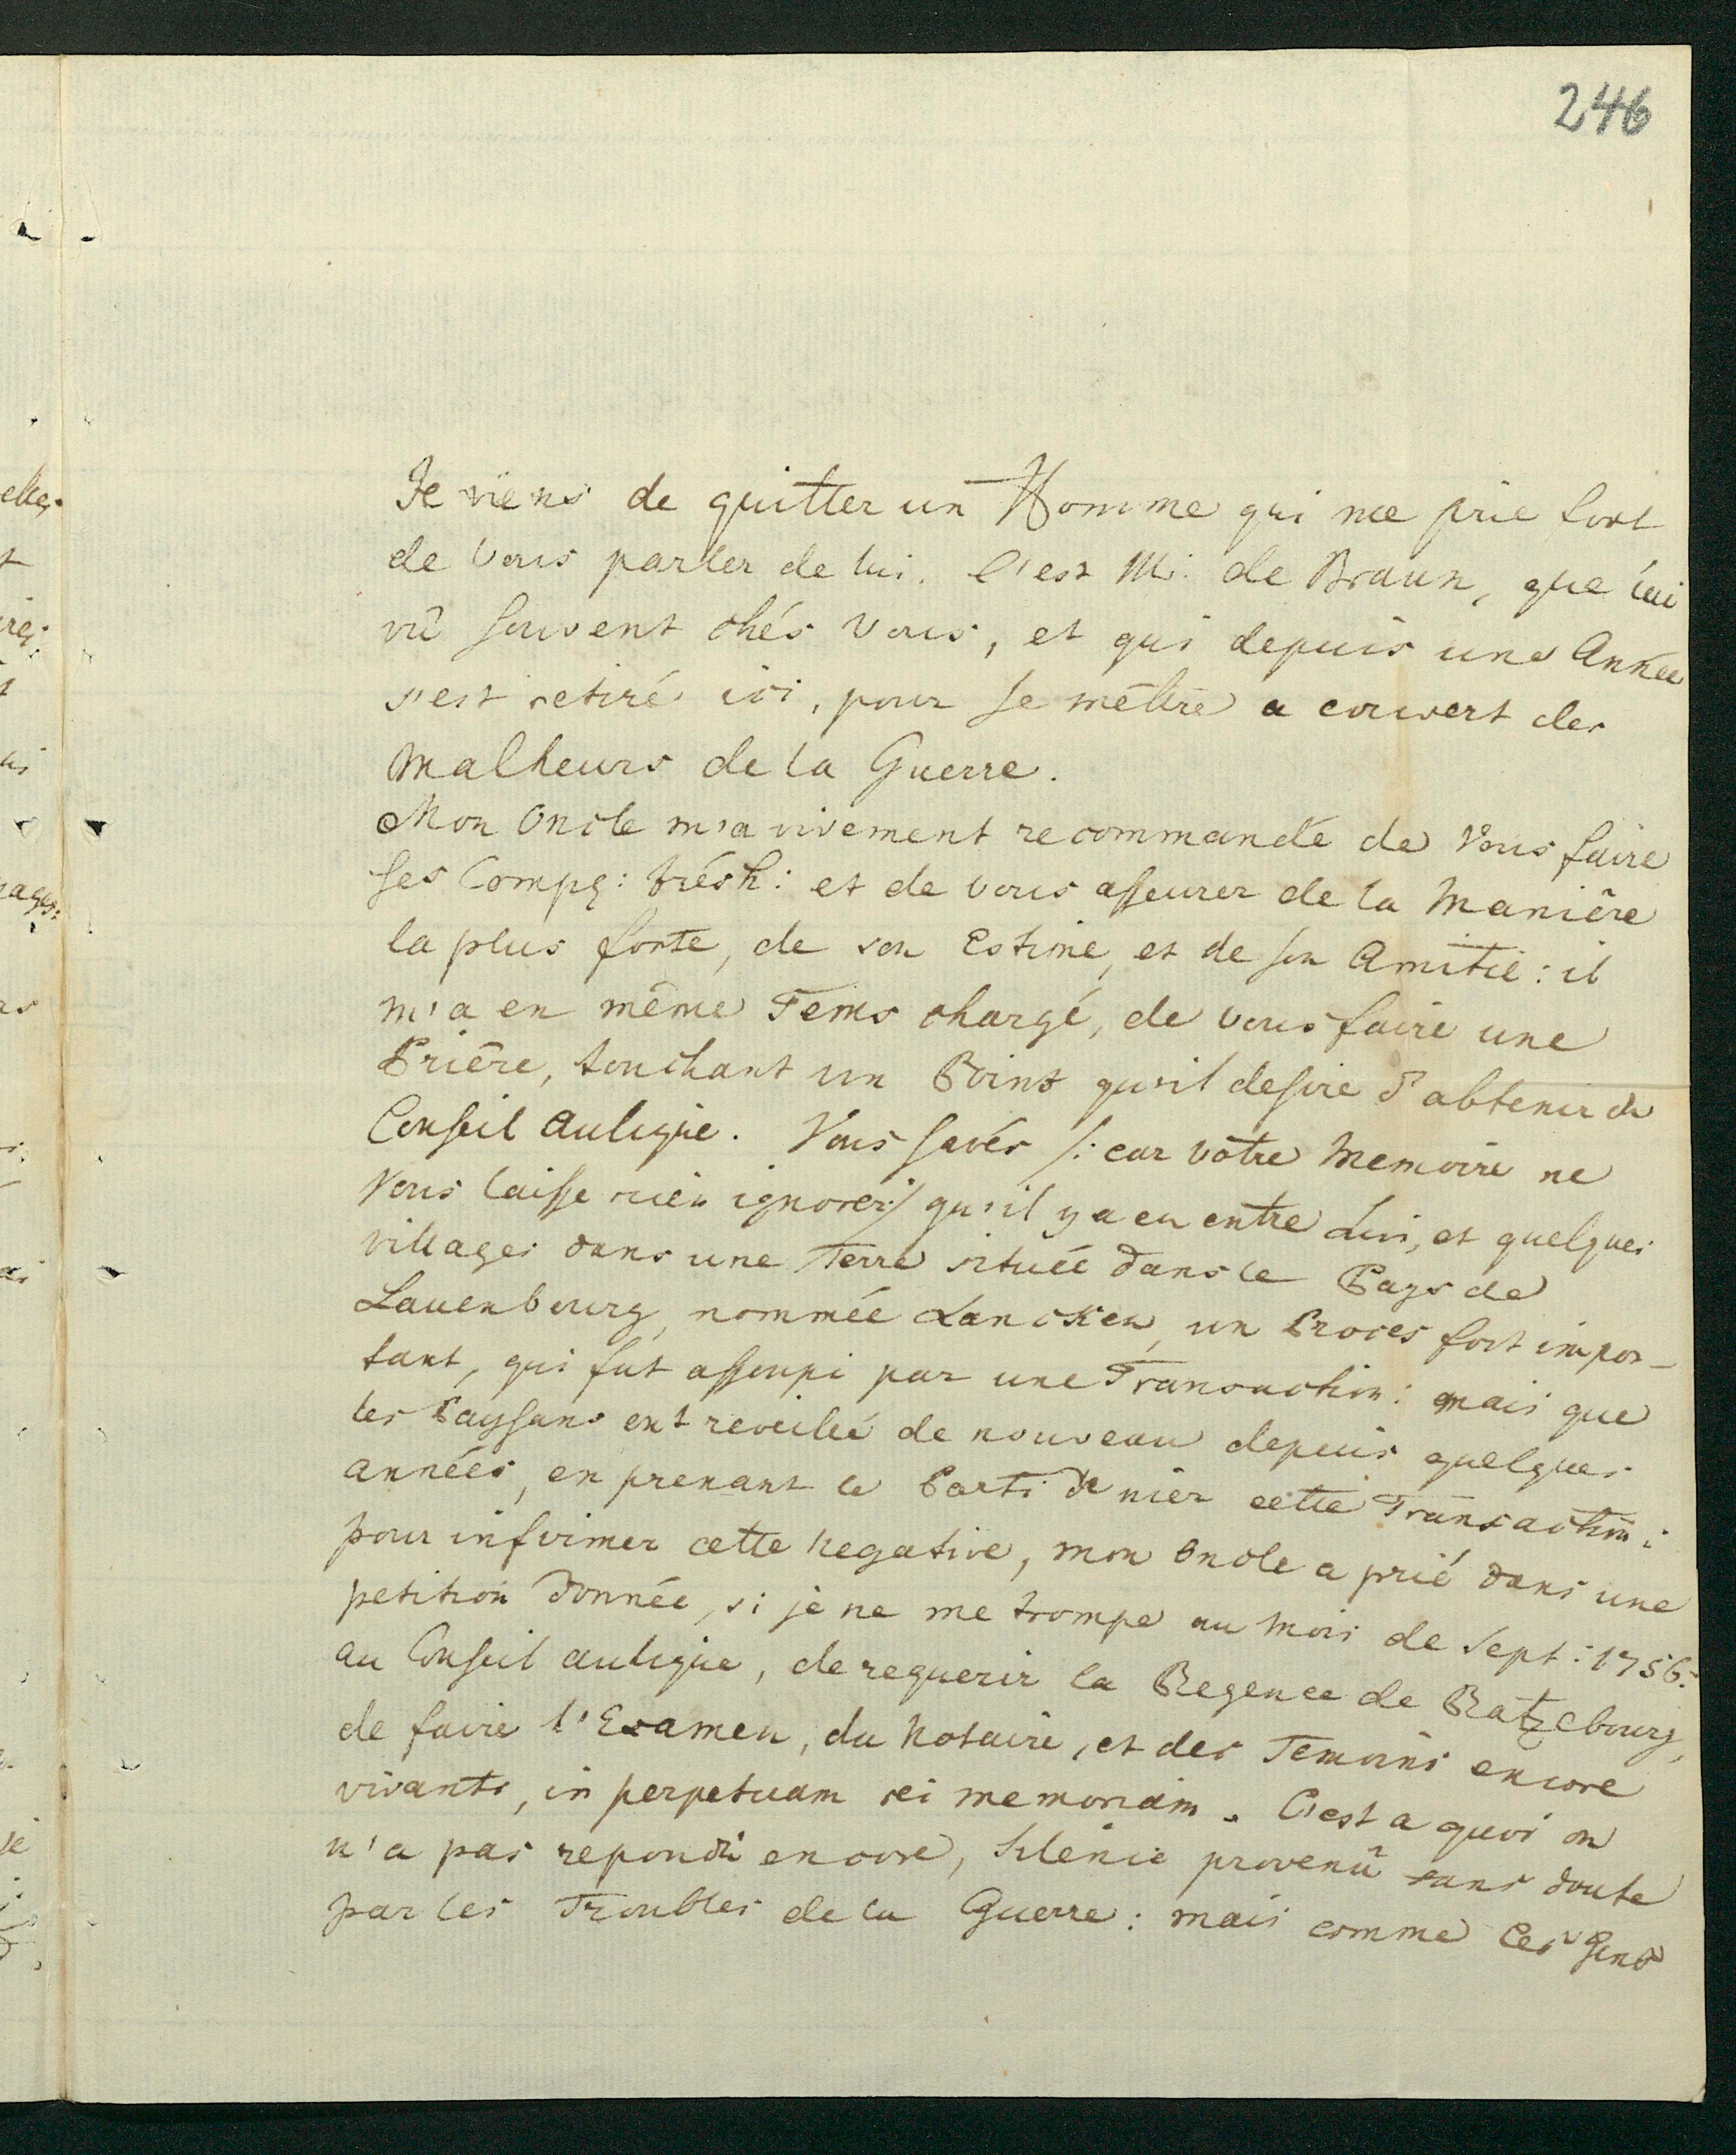 246
Je viens de quitter un Homme qui me prie fort
de Vous parler de lui. C'est Mr. de Braun, que j'ai
vû souvent chés Vous, et qui depuis une Année
s'est retiré ici, pour se mêttre a couvert des
Malheurs de la Guerre.
Mon Oncle m'a vivement recommandé de Vous faire
ses Comps: trésh: et de vous asseurer de la Manière
la plus forte, de son Estime, et de son Amitié: il
m'a en même Tems chargé, de vous faire une
Prière, touchant un Point qu'il desire d'abtenir du
Conseil Aulique. Vous savés /: car vôtre Memoire ne
Vous laisse rien ignorer:/ qu'il y a eu entre Lui, et quelques
villages dans une Terre située dans le Pays de
Lauenbourg, nommée Lancken, un Proces fort impor-
tant, qui fut assoupi par une Transaction: mais que
les Paysans ont reveilleé de nouveau depuis quelques
années, en prenant le Parti de nier cette Transaction:
pour infirmer cette Negative, mon Oncle a prié dans une
petition donnée, si je ne me trompe au Mois de Sept: 1756.
au Conseil aulique, de requerir la Regence de Ratzebourg,
de faire l'Examen, du Notaire, et des Temoins encore
vivants, in perpetuam rei memoriam. C'est a quoi on
n'a pas repondû encore, Silence provenû sans doute
par les Troubles de la Guerre: mais comme ces Gens
elles
ages: